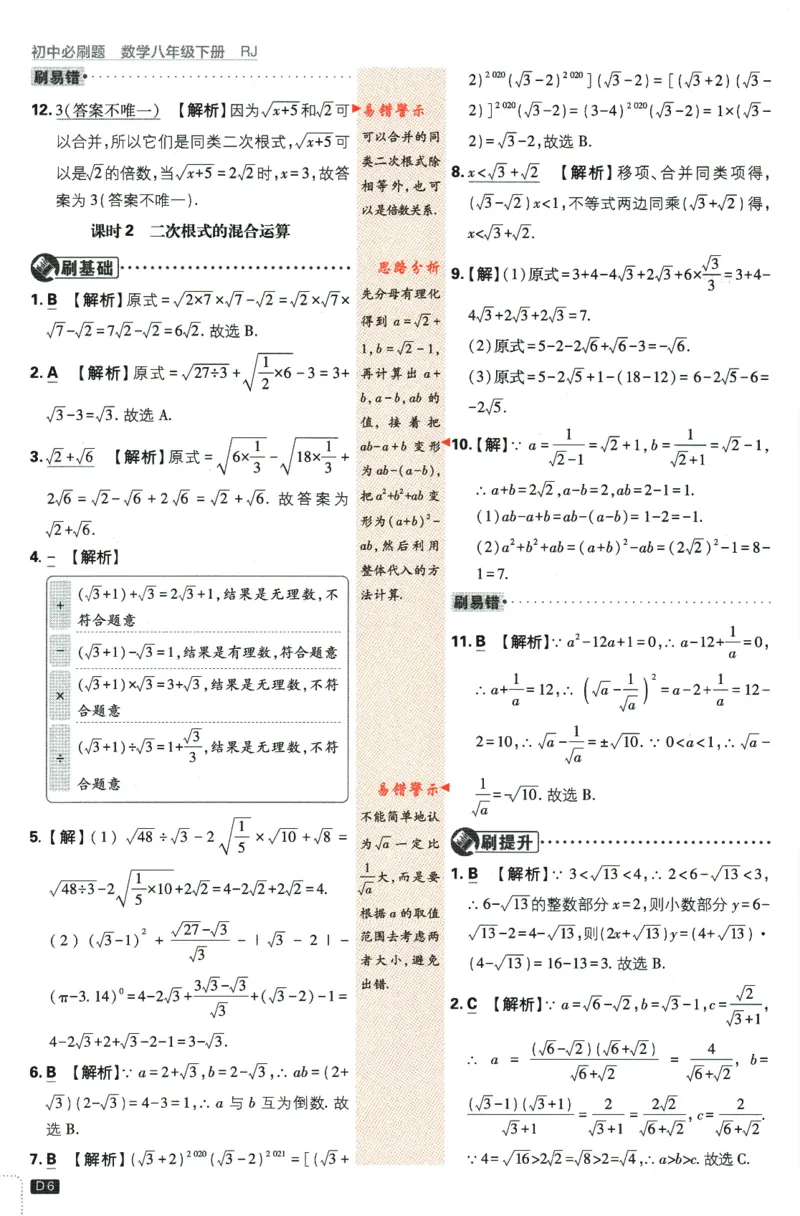 初中必刷题 数学八年级下册 RJ
刷易错
12. 3(答案不唯一) 【解析】因为√(x+5)和√2可
以合并,所以它们是同类二次根式,√(x+5)可
以是√2的倍数,当√(x+5)=2√2时,x=3,故答
案为3(答案不唯一).
课时2 二次根式的混合运算
刷基础
1. B 【解析】原式=√(2×7)×√7-√2=√2×√7×
√7-√2=7√2-√2=6√2. 故选B.
2. A 【解析】原式=√(27÷3)+√(1/2×6)-3=3+
√3-3=√3. 故选A.
3. √2+√6 【解析】原式=√(6×1/3)-√(18×1/3)+
2√6=√2-√6+2√6=√2+√6. 故答案为
√2+√6.
4. - 【解析】
+ (√3+1)+√3=2√3+1,结果是无理数,不
符合题意
- (√3+1)-√3=1,结果是有理数,符合题意
× (√3+1)×√3=3+√3,结果是无理数,不符
合题意
÷ (√3+1)÷√3=1+√3/3,结果是无理数,不符
合题意
5. 【解】(1) √48÷√3-2√(1/5)×√10+√8=
√(48÷3)-2√(1/5×10)+2√2=4-2√2+2√2=4.
(2) (√3-1)²+(√27-√3)/√3-|√3-2|-
(π-3.14)⁰=4-2√3+(3√3-√3)/√3+(√3-2)-1=
4-2√3+2+√3-2-1=3-√3.
6. B 【解析】∵a=2+√3,b=2-√3,∴ab=(2+
√3)(2-√3)=4-3=1,∴a与b互为倒数. 故
选B.
7. B 【解析】(√3+2)²⁰²⁰(√3-2)²⁰²¹=[(√3+
D6
易错警示
可以合并的同
类二次根式除
相等外,也可
以是倍数关系.
思路分析
先分母有理化
得到a=√2+
1,b=√2-1,
再计算出a+
b,a-b,ab的
值,接着把
ab-a+b变形
为ab-(a-b),
把a²+b²+ab变
形为(a+b)²-
ab,然后利用
整体代入的方
法计算.
易错警示
不能简单地认
为√a一定比
1/√a大,而是要
根据a的取值
范围去考虑两
者大小,避免
出错.
2)²⁰²⁰(√3-2)²⁰²⁰](√3-2)=[(√3+2)(√3-
2)]²⁰²⁰(√3-2)=(3-4)²⁰²⁰(√3-2)=1×(√3-
2)=√3-2,故选B.
8. x<√3+√2 【解析】移项、合并同类项得,
(√3-√2)x<1,不等式两边同乘(√3+√2)得,
x<√3+√2.
9. 【解】(1)原式=3+4-4√3+2√3+6×√3/3=3+4-
4√3+2√3+2√3=7.
(2)原式=5-2-2√6+√6-3=-√6.
(3)原式=5-2√5+1-(18-12)=6-2√5-6=
-2√5.
10. 【解】∵a=1/(√2-1)=√2+1,b=1/(√2+1)=√2-1,
∴a+b=2√2,a-b=2,ab=2-1=1.
(1)ab-a+b=ab-(a-b)=1-2=-1.
(2)a²+b²+ab=(a+b)²-ab=(2√2)²-1=8-
1=7.
刷易错
11. B 【解析】∵a²-12a+1=0,∴a-12+1/a=0,
∴a+1/a=12,∴(√a-1/√a)²=a-2+1/a=12-
2=10,∴√a-1/√a=±√10. ∵0<a<1,∴√a-
1/√a=-√10. 故选B.
刷提升
1. B 【解析】∵3<√13<4,∴2<6-√13<3,
∴6-√13的整数部分x=2,则小数部分y=6-
√13-2=4-√13,则(2x+√13)y=(4+√13)·
(4-√13)=16-13=3. 故选B.
2. C 【解析】∵a=√6-√2,b=√3-1,c=√2/(√3+1),
∴a=(√6-√2)(√6+√2)/(√6+√2)=4/(√6+√2),b=
(√3-1)(√3+1)/(√3+1)=2/(√3+1)=2√2/(√6+√2),c=2/(√6+√2).
∵4=√16>2√2=√8>2=√4,∴a>b>c. 故选C.